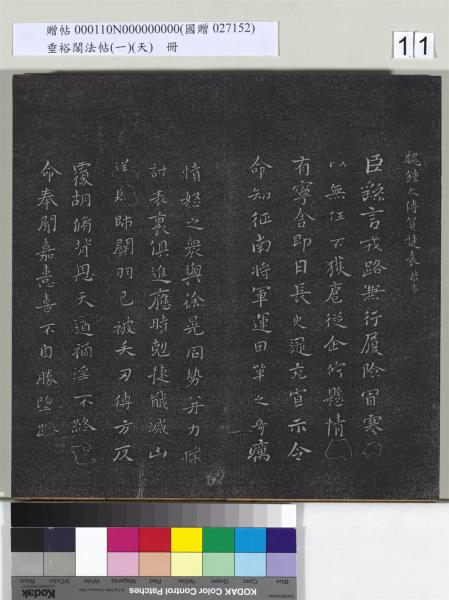 贈帖 000110N000000000(國贈 027152)
垂裕閣法帖(一)(天) 冊
11
魏鍾太傅賀捷表
臣繇言戎路兼行履險冒寒
以無任不獲扈從企佇懸情
有寧舍即日長史逯充宣示令
命知征南將軍運田單之奇厲
憤怒之衆與徐晃同勢并力撲
討表裏俱進應時剋捷馘滅山
賊帥關羽已被矢刃傅方反
覆胡脩背恩天道禍淫不終
命奉聞嘉憙喜不自勝望路
Blue
Cyan
Green
Yellow
Red
Magenta
White
3/Color
Black
Kodak
KODAK Color Control Patches
Kodak